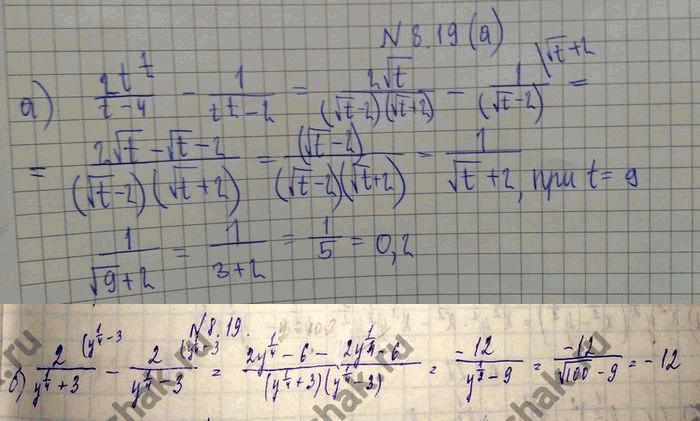 N 8.19 (а)
а) 2t^½/(t-4) - 1/(t^½-2) = 2√t/((√t-2)(√t+2)) - 1\√t+2/(√t-2) =
= (2√t-√t-2)/((√t-2)(√t+2)) = (√t-2)/((√t-2)(√t+2)) = 1/(√t+2), при t=9
1/(√9+2) = 1/(3+2) = 1/5 = 0,2
N8.19.
б) 2(y^¼-3/(y^¼+3) - 2/(y^¼-3) = (2y^¼-6-2y^¼-6)/((y^¼+3)(y^¼-3)) = -12/(y^½-9) = -12/(√100-9) = -12